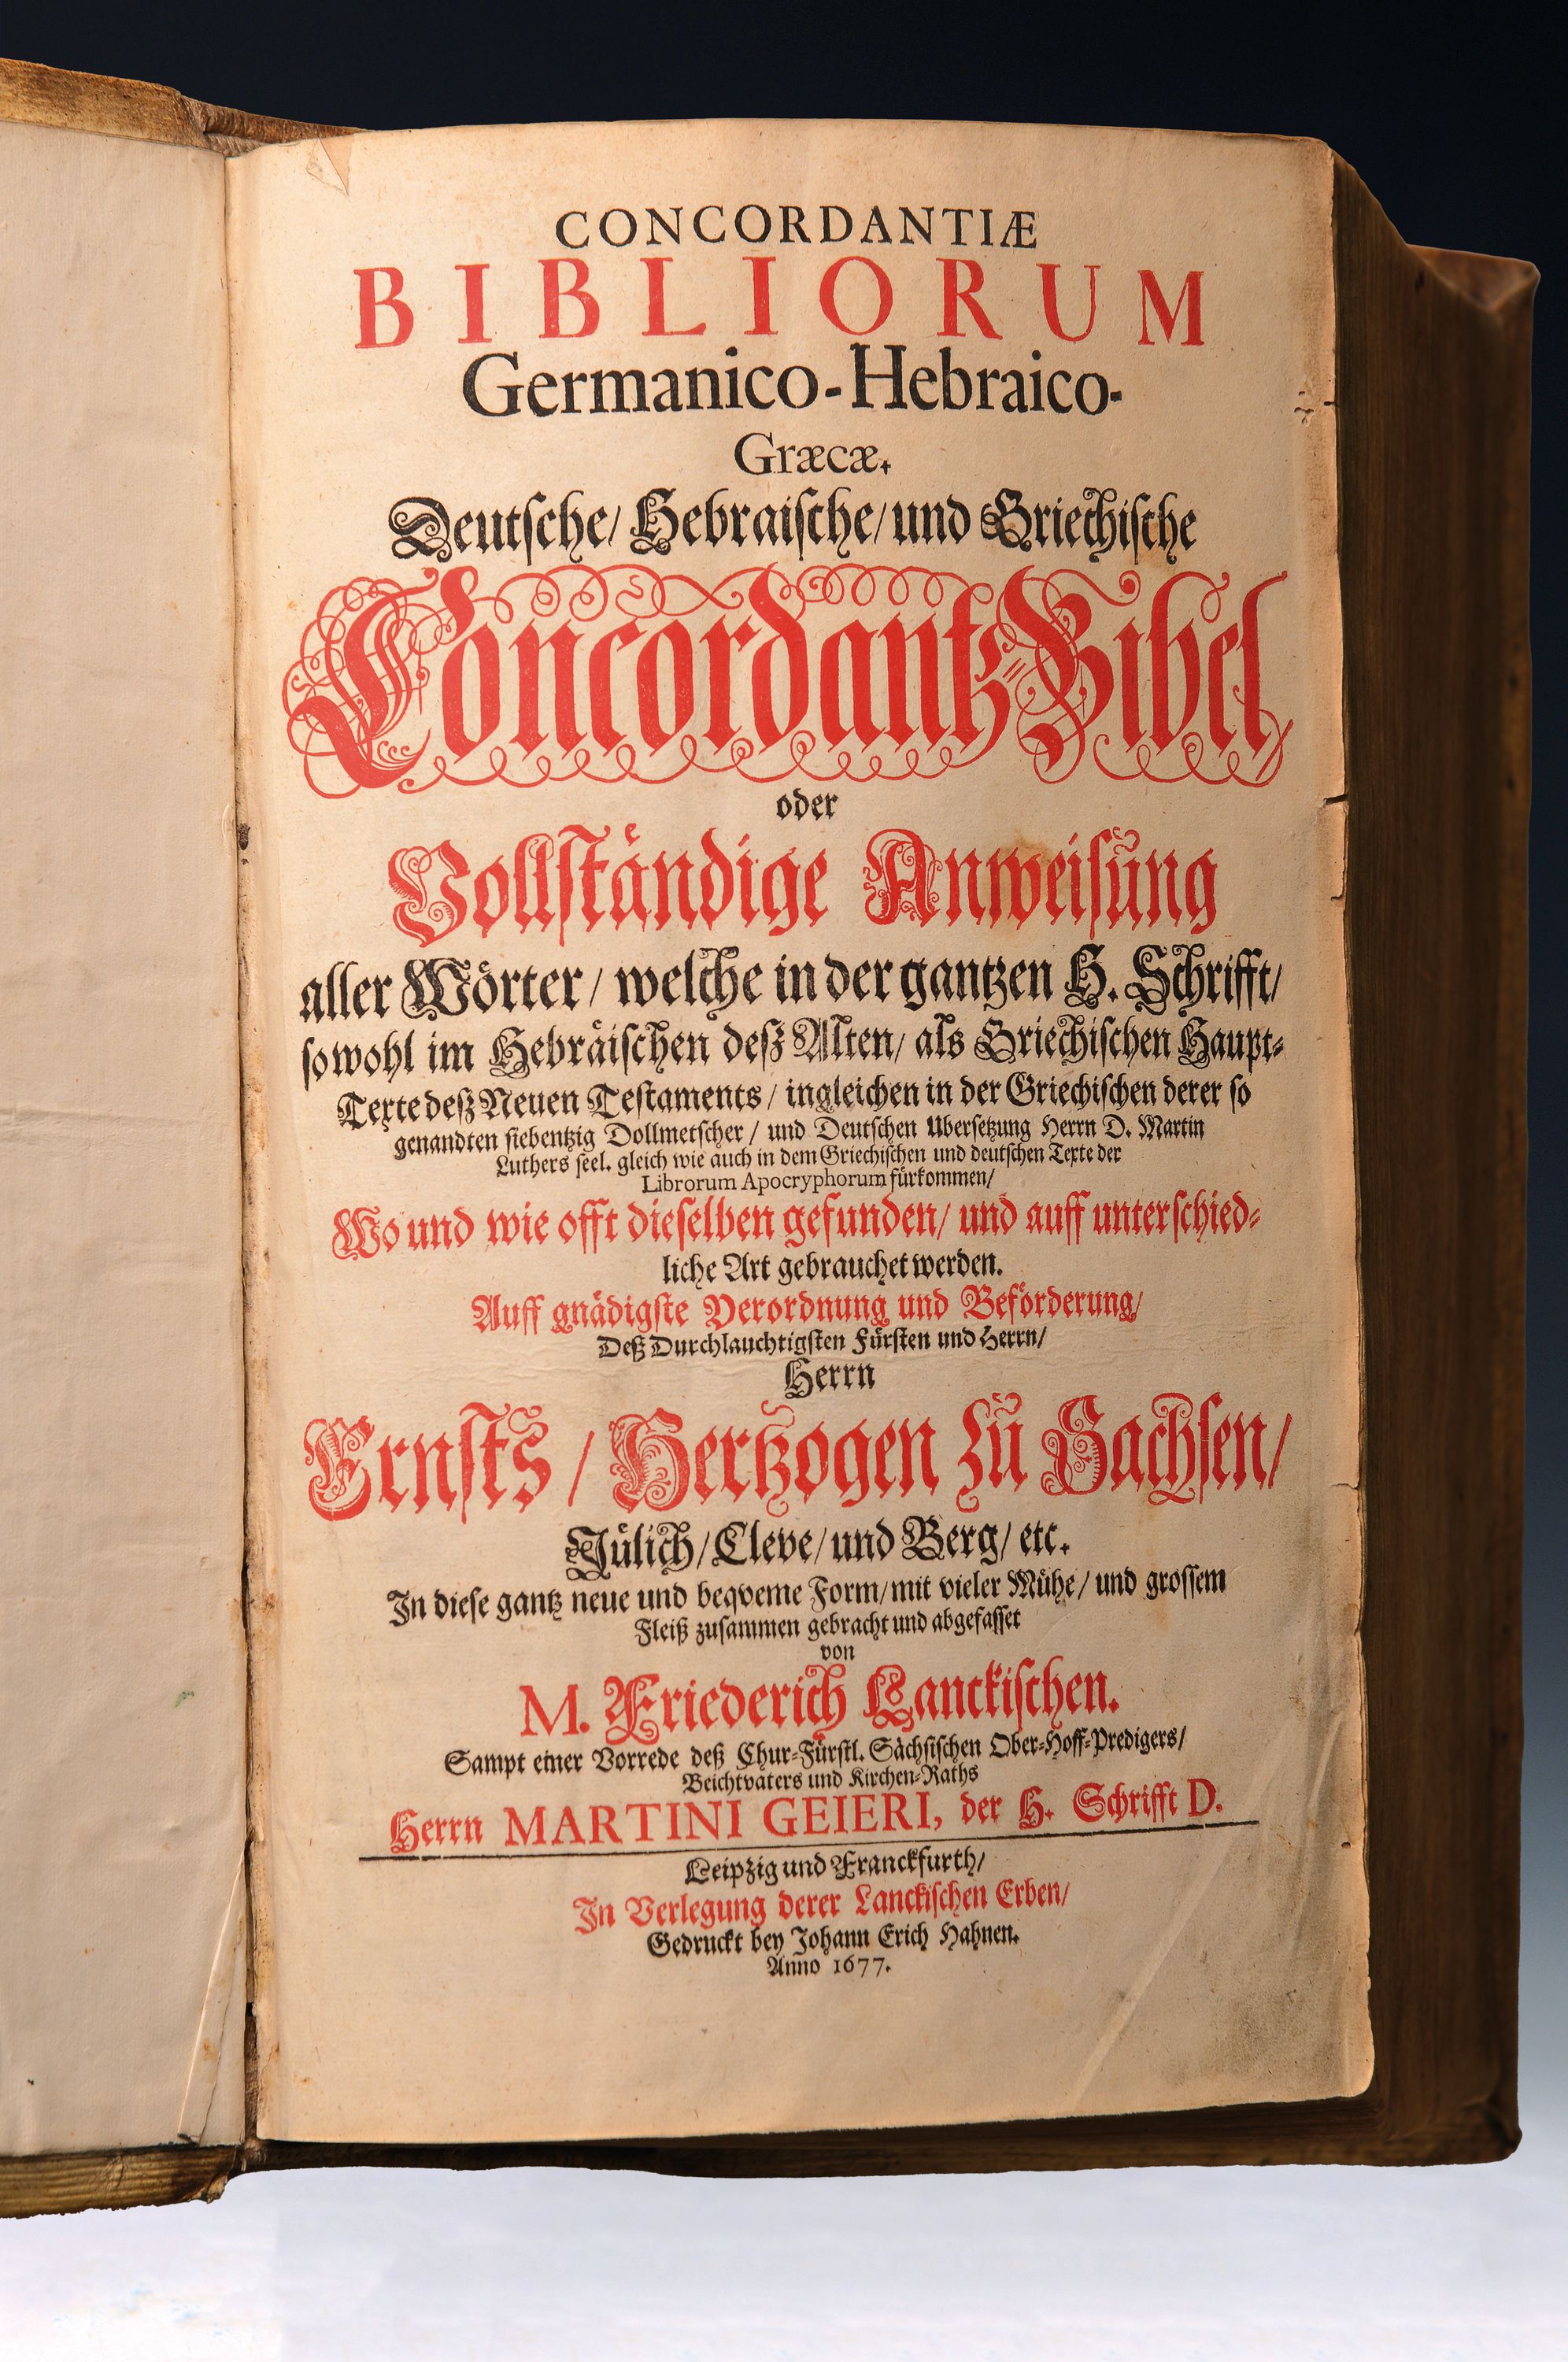 CONCORDANTIÆ
BIBLIORUM
Germanico-Hebraico-
Græcæ.
Deutsche/ Hebraische/ und Griechische
Concordantz-Bibel/
oder
Vollständige Anweisung
aller Wörter/ welche in der gantzen H. Schrifft/
sowohl im Hebräischen deß Alten/ als Griechischen Haupt-
Texte deß Neuen Testaments/ ingleichen in der Griechischen derer so
genandten siebentzig Dollmetscher/ und Deutschen Ubersetzung Herrn D. Martin
Luthers seel. gleich wie auch in dem Griechischen und deutschen Texte der
Librorum Apocryphorum fürkommen/
Wo und wie offt dieselben gefunden/ und auff unterschied-
liche Art gebrauchet werden.
Auff gnädigste Verordnung und Beförderung/
Deß Durchlauchtigsten Fürsten und Herrn/
Herrn
Ernsts/ Hertzogen zu Sachsen/
Jülich/ Cleve/ und Berg/ etc.
In diese gantz neue und beqveme Form/ mit vieler Mühe/ und grossem
Fleiß zusammen gebracht und abgefasset
von
M. Friederich Lanckischen.
Sampt einer Vorrede deß Chur-Fürstl. Sächsischen Ober-Hoff-Predigers/
Beichtvaters und Kirchen-Raths
Herrn MARTINI GEIERI, der H. Schrifft D.
Leipzig und Franckfurth/
In Verlegung derer Lanckischen Erben/
Gedruckt bey Johann Erich Hahnen.
Anno 1677.